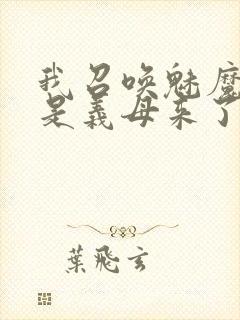 我召唤魅魔
是義母来了
葉飛玄